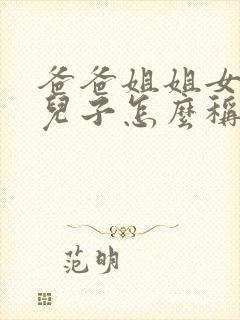 爸爸姐姐女
兒子怎麼稱
范明